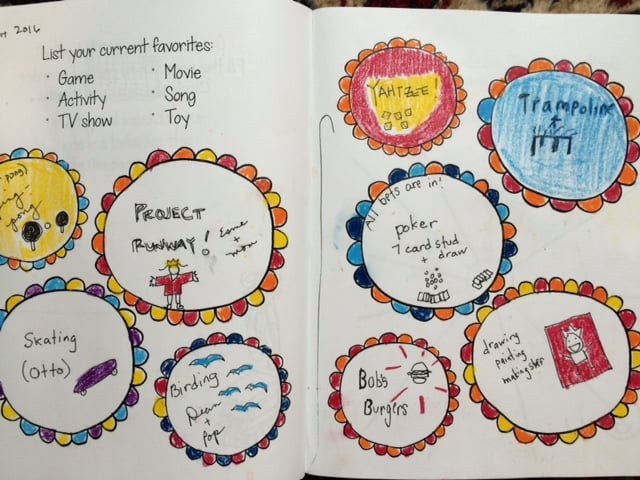 2016
List your current favorites:
· Game
· Activity
· TV show
· Movie
· Song
· Toy
pong)
pong
PROJECT
RUNWAY!
Esme
+
mom
Skating
(Otto)
Birding
Dean
+
Pop
YAHTZEE!
Trampoline
All bets are in!
poker
7 card stud
+ draw
Bobs
Burgers
drawing
painting
making stuff